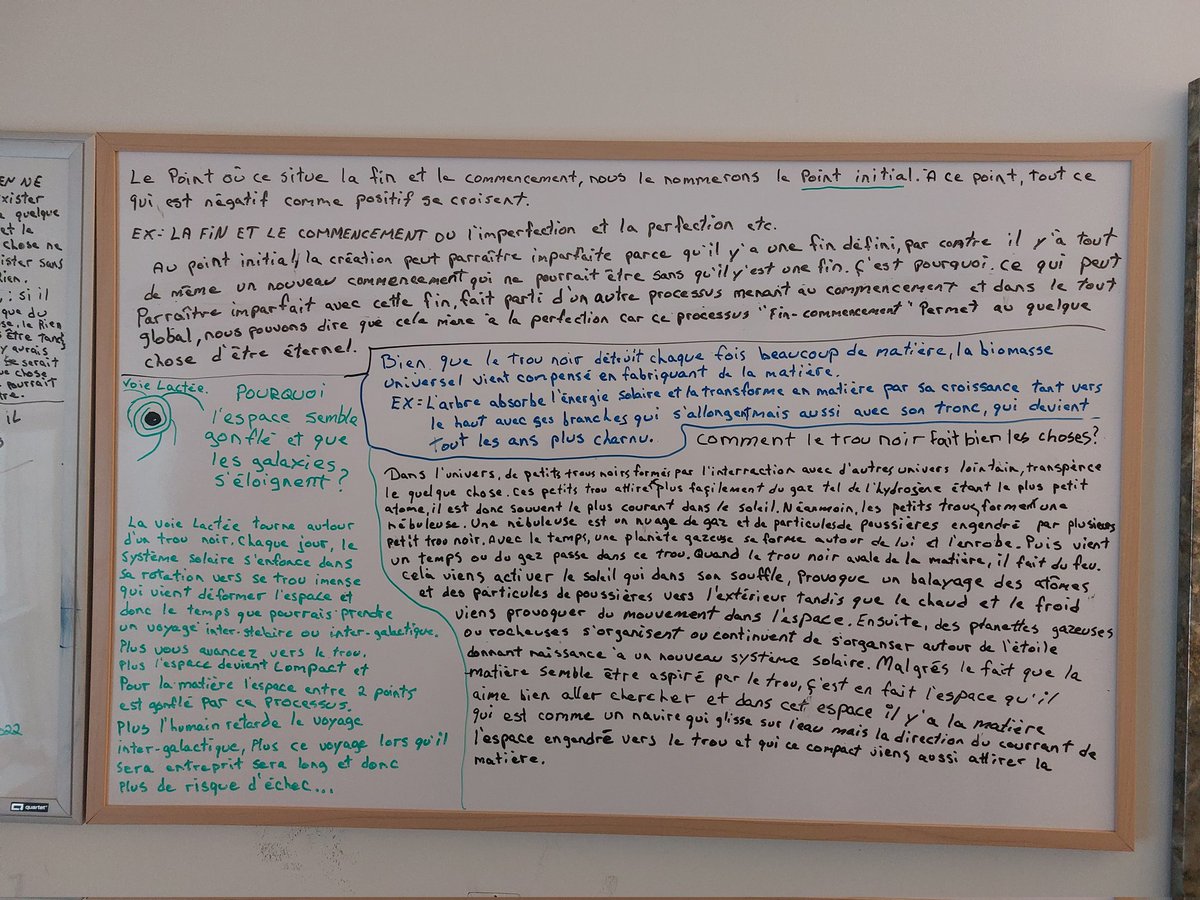 EN NE
xister
quelque
et le
chose ne
ister sans
ien.
; si il
que du
se, le Rien
s être tang
y aurais
se serait
ue chose
pourrait
tre.
IL
2022
quartet
Le Point où ce situe la fin et le commencement, nous le nommerons le Point initial. A ce point, tout ce
qui est négatif comme positif se croisent.
EX: LA FIN ET LE COMMENCEMENT OU l'imperfection et la perfection etc.
Au point initial, la création peut parraître imparfaite parce qu'il y'a une fin défini, par contre il y'a tout
de même un nouveau commencement qui ne pourrait être sans qu'il y'est une fin. Ç'est pourquoi. ce qui peut
Parraître imparfait avec cette fin, fait parti d'un autre processus menant au commencement et dans le tout
global, nous pouvons dire que cela mène à la perfection car ce processus "Fin-commencement" Permet au quelque
chose d'être éternel.
Bien que le trou noir détruit chaque fois beaucoup de matière, la biomasse
universel vient compensé en fabriquant de la matière.
EX: L'arbre absorbe l'énergie solaire et la transforme en matière par sa croissance tant vers
le haut avec ses branches qui s'allongent mais aussi avec son tronc, qui devient
tout les ans plus charnu.
Voie Lactée.
POURQUOI
l'espace semble
gonflé et que
les galaxies
s'éloignent?
La voie Lactée tourne autour
d'un trou noir. Chaque jour, le
système solaire s'enfonce dans
sa rotation vers se trou imense
qui vient déformer l'espace et
donc le temps que pourrais prendre
un voyage inter-stelaire ou inter-galactique.
Plus vous avancez vers le trou.
Plus l'espace devient compact et
Pour la matière l'espace entre 2 points
est gonflé par ce processus.
Plus l'humain retarde le voyage
inter-galactique, Plus ce voyage lors qu'il
sera entreprit sera long et donc
plus de risque d'échec...
Comment le trou noir fait bien les choses?
Dans l'univers, de petits trous noirs formés par l'interraction avec d'autres univers lointain, transpèrce
le quelque chose. Ces petits trou attire plus façilement du gaz tel de l'hydrogène étant le plus petit
atome, il est donc souvent le plus courant dans le soleil. Néanmoin, les petits trous, forment une
nébuleuse. Une nébuleuse est un nuage de gaz et de particules de poussières engendré par plusieurs
petit trou noir. Avec le temps, une planète gazeuse se forme autour de lui et l'enrobe. Puis vient
un temps ou du gaz passe dans ce trou. Quand le trou noir avale de la matière, il fait du feu.
Celà viens activer le soleil qui dans son souffle, Provogue un balayage des atômes
et des particules de poussières vers l'extérieur tandis que le chaud et le froid
viens provoguer du mouvement dans l'espace. Ensuite, des planettes gazeuses
ou rocheuses s'organisent ou continuent de s'organser autour de l'étoile
donnant naissance à un nouveau système solaire. Malgrés le fait que la
matière semble être aspiré par le trou, ç'est en fait l'espace qu'il
aime bien aller chercher et dans cet espace il y'a la matière
qui est comme un navire qui glisse sur l'eau mais la direction du courrant de
l'espace engendré vers le trou et qui ce compact viens aussi attirer la
matière.